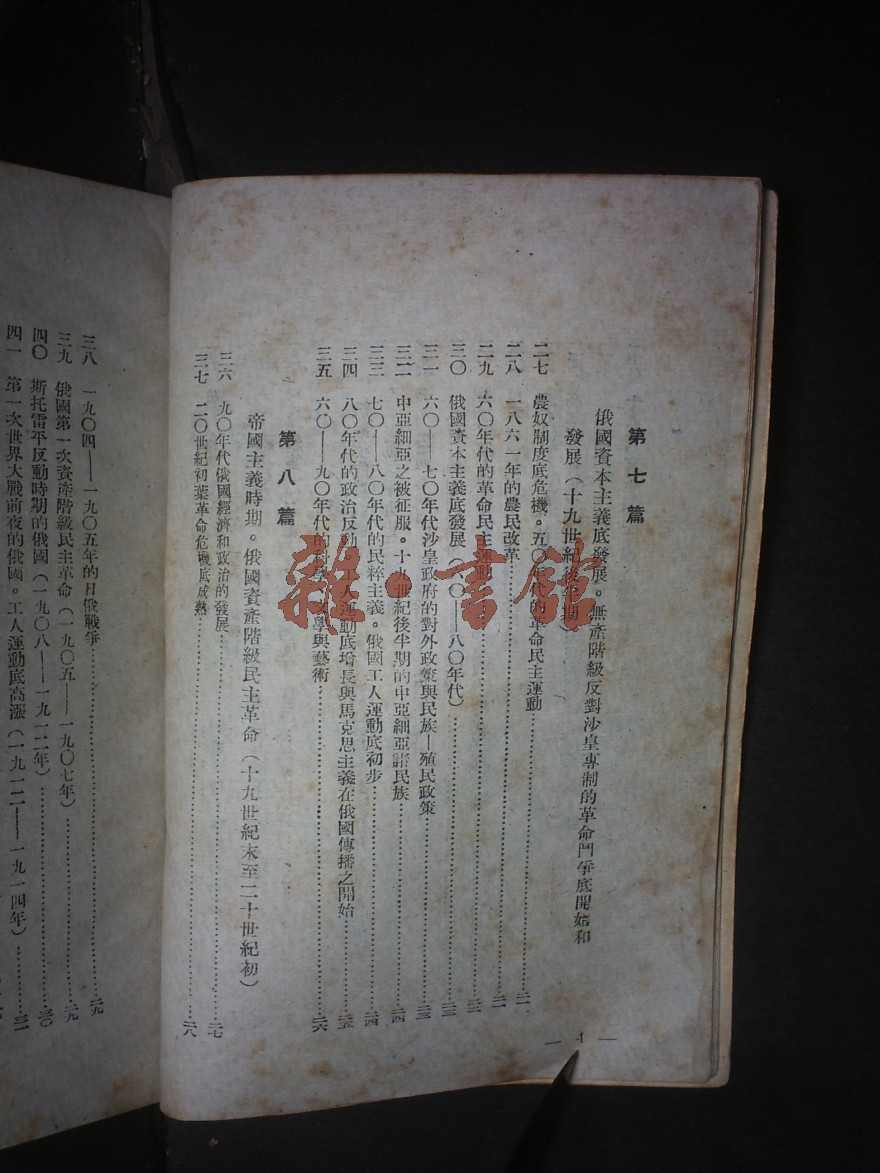 第七篇
俄國資本主義底發展。無產階級反對沙皇專制的革命鬥爭底開始和
發展(十九世紀後半期)
二七 農奴制度底危機。五〇年代的革命民主運動……二一
二八 一八六一年的農民改革……二一
二九 六〇年代的革命民主運動
三〇 俄國資本主義底發展(六〇——八〇年代)
三一 六〇——七〇年代沙皇政府的對外政策與民族—殖民政策……二三
三二 中亞細亞之被征服。十九世紀後半期的中亞細亞諸民族……二四
三三 七〇——八〇年代的民粹主義。俄國工人運動底初步……二四
三四 八〇年代的政治反動。工人運動底增長與馬克思主義在俄國傳播之開始……二五
三五 六〇——九〇年代的科學、文學與藝術……二六
第八篇
帝國主義時期。俄國資產階級民主革命(十九世紀末至二十世紀初)
三六 九〇年代俄國經濟和政治的發展……二七
三七 二〇世紀初葉革命危機底成熟……二八
— 4 —
三八 一九〇四——一九〇五年的日俄戰爭……二九
三九 俄國第一次資產階級民主革命(一九〇五——一九〇七年)……二九
四〇 斯托雷平反動時期的俄國(一九〇八——一九一二年)……三〇
四一 第一次世界大戰前夜的俄國。工人運動底高漲(一九一二——一九一四年)
雜·書館